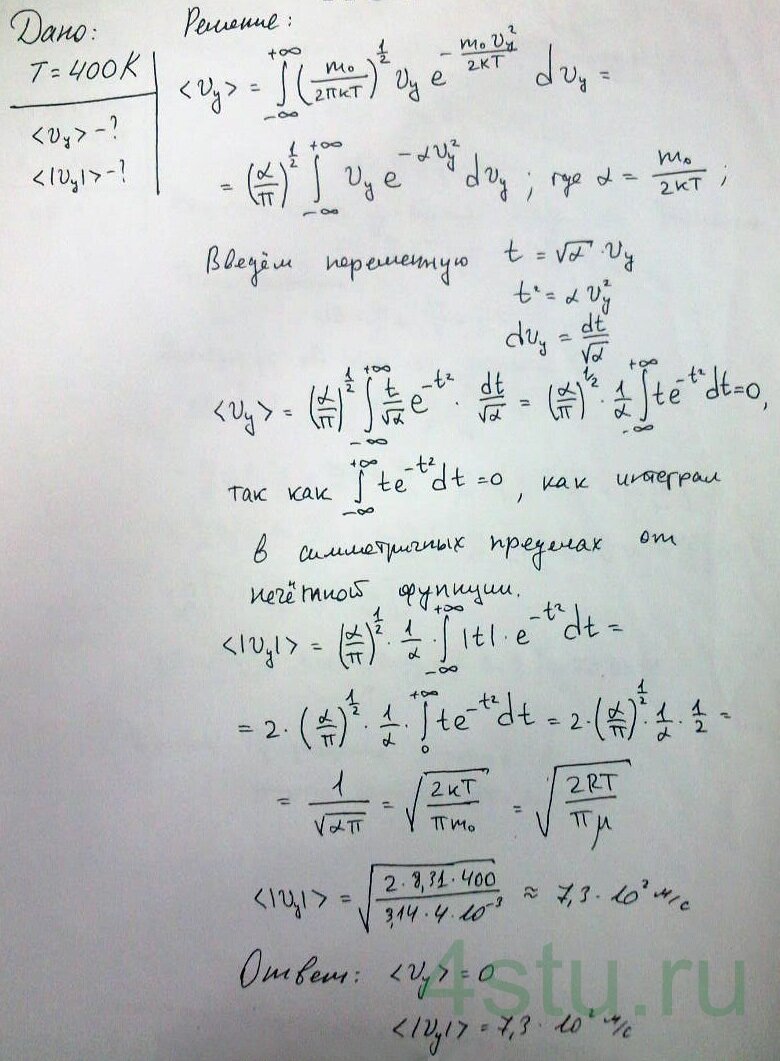 Дано:
T = 400K
<υ_y> - ?
<|υ_y|> - ?
Решение:
<υ_y> = ∫_{-∞}^{+∞} (m₀/2πкT)^{1/2} υ_y e^{-m₀υ_y²/2кT} dυ_y =
= (α/π)^{1/2} ∫_{-∞}^{+∞} υ_y e^{-αυ_y²} dυ_y ; где α = m₀/2кT ;
Введём переменную t = √α · υ_y
t² = α υ_y²
dυ_y = dt/√α
<υ_y> = (α/π)^{1/2} ∫_{-∞}^{+∞} t/√α e^{-t²} · dt/√α = (α/π)^{1/2} · 1/α ∫_{-∞}^{+∞} te^{-t²}dt=0,
так как ∫_{-∞}^{+∞} te^{-t²}dt =0 , как интеграл
в симметричных пределах от
нечётной функции.
<|υ_y|> = (α/π)^{1/2} · 1/α · ∫_{-∞}^{+∞} |t| · e^{-t²} dt =
= 2 · (α/π)^{1/2} · 1/α · ∫_{0}^{+∞} te^{-t²}dt = 2 · (α/π)^{1/2} · 1/α · 1/2 =
= 1/√(απ) = √(2кT/πm₀) = √(2RT/πμ)
<|υ_y|> = √(2 · 8,31 · 400 / 3,14 · 4 · 10^{-3}) ≈ 7,3 · 10² м/с
Ответ: <υ_y> = 0
<|υ_y|> = 7,3 · 10² м/с
4stu.ru